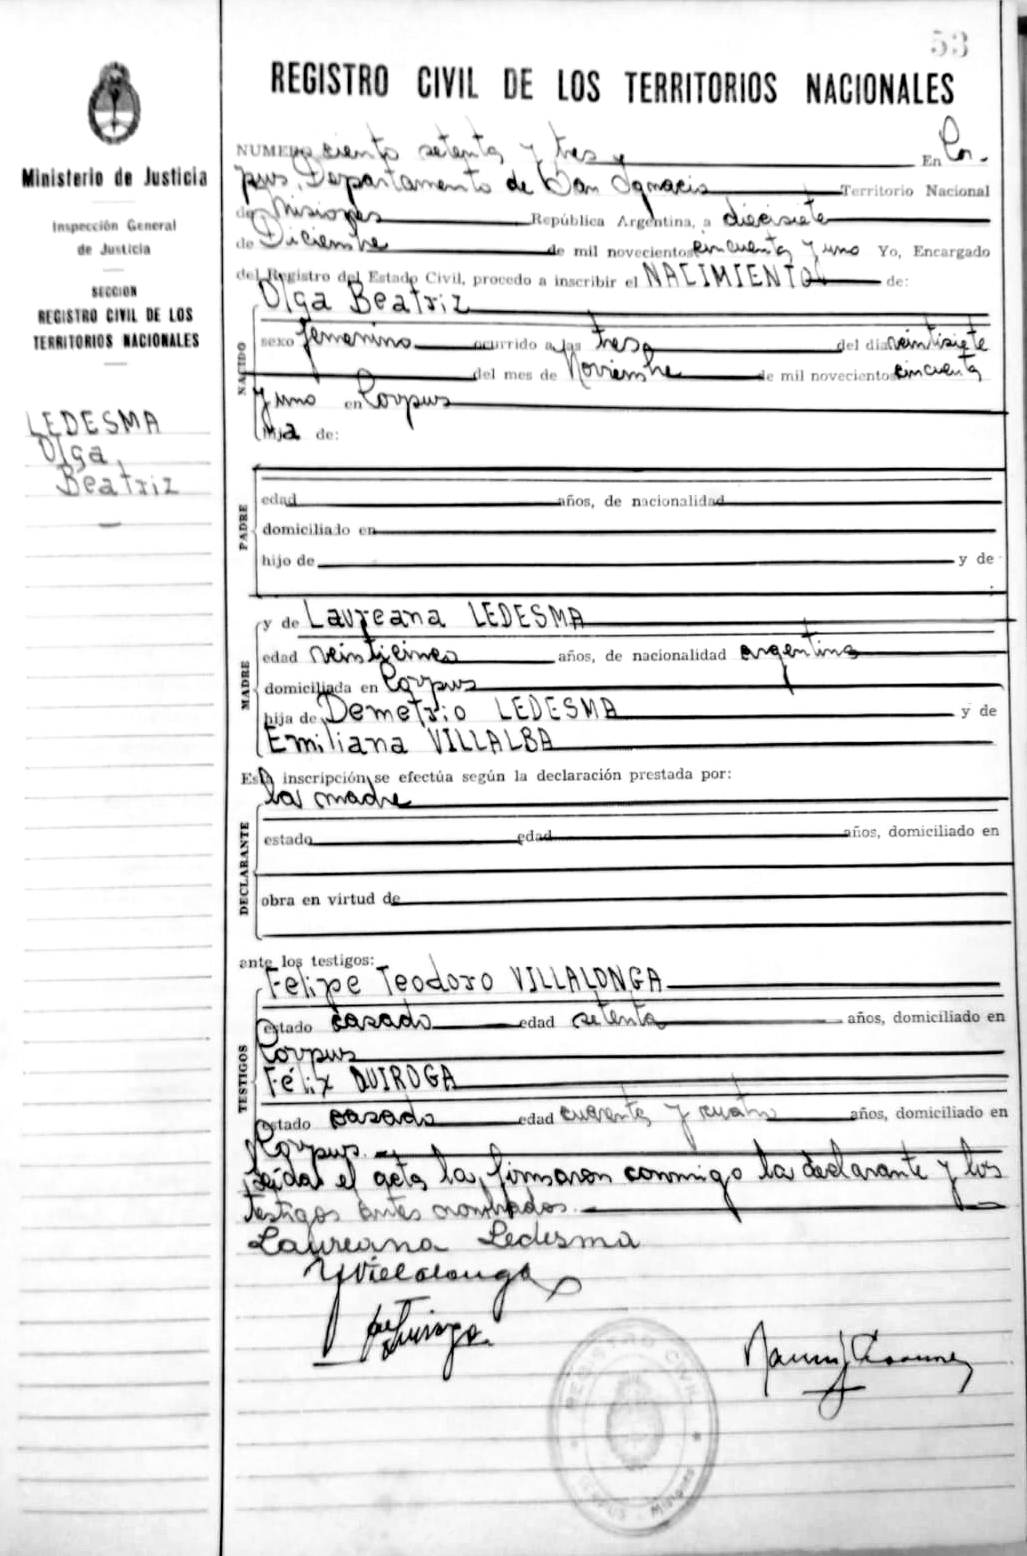 53
REGISTRO CIVIL DE LOS TERRITORIOS NACIONALES
Ministerio de Justicia
Inspección General
de Justicia
SECCION
REGISTRO CIVIL DE LOS
TERRITORIOS NACIONALES
LEDESMA
Olga
Beatriz
NUMERO ciento setenta y tres En Cor-
pus, Departamento de San Ignacio Territorio Nacional
de Misiones República Argentina, a diecisiete
de Diciembre de mil novecientos cincuenta y uno Yo, Encargado
del Registro del Estado Civil, procedo a inscribir el NACIMIENTO de:
NACIDO
Olga Beatriz
sexo femenino ocurrido a las tres del dia veintisiete
del mes de Noviembre de mil novecientos cincuenta
y uno en Corpus
hija de:
PADRE
edad años, de nacionalidad
domiciliado en
hijo de y de
MADRE
y de Laureana LEDESMA
edad veinticinco años, de nacionalidad argentina
domiciliada en Corpus
hija de Demetrio LEDESMA y de
Emiliana VILLALBA
Esta inscripción se efectúa según la declaración prestada por:
DECLARANTE
la madre
estado edad años, domiciliado en
obra en virtud de
ante los testigos:
TESTIGOS
Felipe Teodoro VILLALONGA
estado casado edad setenta años, domiciliado en
Corpus
Félix QUIROGA
estado casado edad cuarenta y cuatro años, domiciliado en
Corpus.
Leída el acta la firmaron conmigo la declarante y los
testigos antes nombrados.
Laureana Ledesma
Villalonga
Quiroga
REGISTRO CIVIL
CORPUS - Misiones